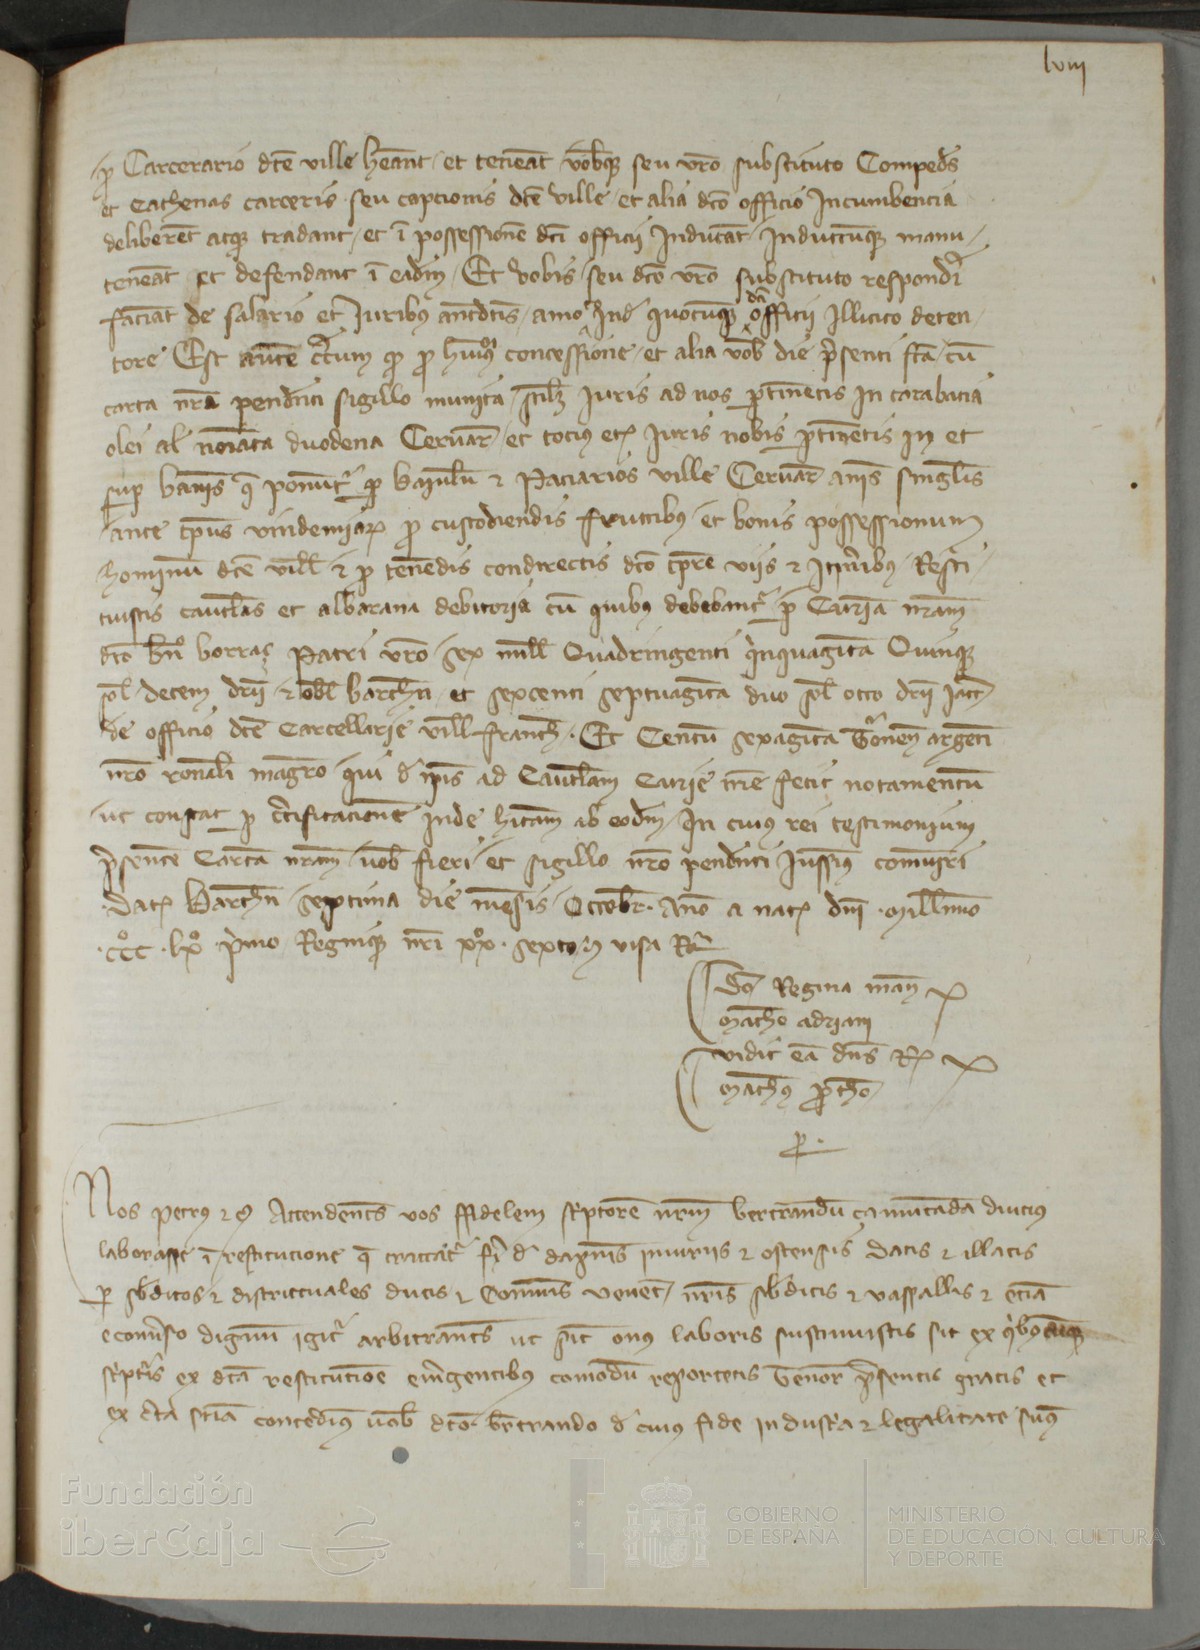 lviii
p Carcerario dce ville heant et teneat vobqz seu vro substituto Compeds
et cathenas carceris seu capcionis dce ville et alia dco officio Incumbencia
deliberet atqz tradant et i possessione dci officii Inducat Inductuqz manu
teneat et defendant i eadm Et vobis seu dco vro substituto responderi
faciat de salario et Iuribus antdcis amo Ind quocuqz dci officii Illicito deten
tore Est aute certum qz p humoi concessione et alia vob die psenti fca cu
carta nra pendenti sigillo munita scilz Iuris ad nos ptinetis In carabacia
olei al noiata duodena Ceruar et tocius etz Iuris nobis ptinetis in et
sup bannis q ponutr p baiulu et Paciarios ville Ceruar anis singulis
ante tpus vindemiarz p custodiendis fructibus et bonis possessionum
hominu dce vill et p tenedis condirectis dco tpre viis et Itineribus Resti
tuistis cautlas et albarana debitoria cu quibus debebantr p Curia nram
dco bn borraç Patri vro sex mill Quadringenti quinquagita Quinqz
sol decem drii et obl barchn et sexcenti septuagita duo sol otto drii Iacc
de officio dce Carcellarie vill franch Et Centu sexagita
nro ronali magro qui d ipis ad Cautlam Curie nre fecit notamentu
ut constat p certificatione inde hitam ab eodm In cuius rei testimonium
psente Carta nram vob fieri et sigillo nro pendenti Iussim comuiri
Datz Barchn septima die mensis Octobr Ano a natz dni Millimo
CCCo lxo pimo Regniqz nri xxo sexto visa Ro
Dna Regina man
Matheo adriani
vidit ea dns Rx
Matheus protho
p
Nos petrus etc Attendentes vos fidelem scriptore nrm bertrandu ça muntada diucius
laborasse i restitucione q tractatr fi d dapnis iniuriis et ofensis datis et illatis
p sbditos et districtuales ducis et Comunis venet nris sbditis et vassallis et ecia
econuerso dignum igitr arbitrantes ut sicut onus laboris sustinuistis sic ex quibuscuqz
scriptis ex dca restitucioe emergentibus comodu reportetis Tenor psentis gratis et
ex certa scia concedimus vob dco brtrando d cuius fide industia et legalitate sumus
Fundación
iberCaja
GOBIERNO
DE ESPAÑA
MINISTERIO
DE EDUCACIÓN, CULTURA
Y DEPORTE